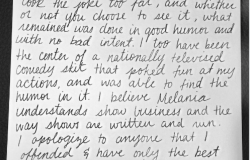 took the joke too far, and whether
or not you choose to see it, what
remained was done in good humor and
with no bad intent. I too have been
the center of a nationally televised
comedy skit that poked fun at my
actions, and was able to find the
humor in it. I believe Melania
understands show business and the
way shows are written and run.
I apologize to anyone that I
offended & have only the best